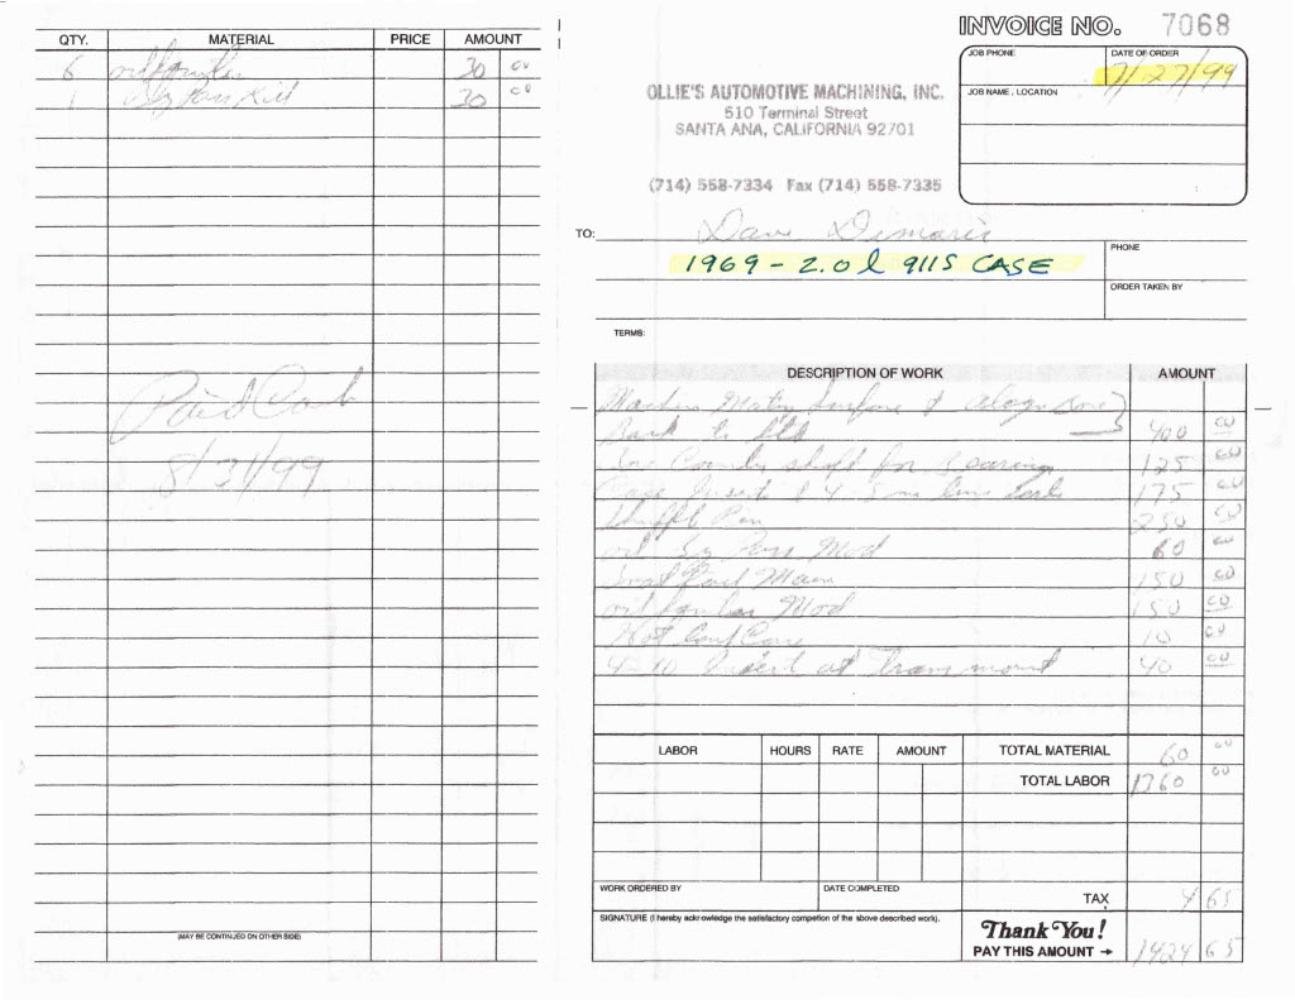 QTY. MATERIAL PRICE AMOUNT
6 30 00
1 30 00
Paid Cash
8/31/99
(MAY BE CONTINUED ON OTHER SIDE)
INVOICE NO. 7068
JOB PHONE DATE OF ORDER
7/27/99
JOB NAME, LOCATION
OLLIE'S AUTOMOTIVE MACHINING, INC.
510 Terminal Street
SANTA ANA, CALIFORNIA 92701
(714) 558-7334 Fax (714) 558-7335
TO: Dave Dimaris
PHONE
1969 - 2.0l 911S CASE
ORDER TAKEN BY
TERMS:
DESCRIPTION OF WORK AMOUNT
Machine Mating Surface & align bore
Back to Std 400 00
shaft for Bearing 125 00
Case Insert & 175 00
Shuffle Pin 250 00
oil By Pass Mod 60 00
150 00
oil Mod 150 00
10 00
Insert at Trans mount 40 00
LABOR HOURS RATE AMOUNT TOTAL MATERIAL 60 00
TOTAL LABOR 1360 00
WORK ORDERED BY DATE COMPLETED TAX 4 65
SIGNATURE (I hereby acknowledge the satisfactory competion of the above described work).
Thank You!
PAY THIS AMOUNT → 1424 65